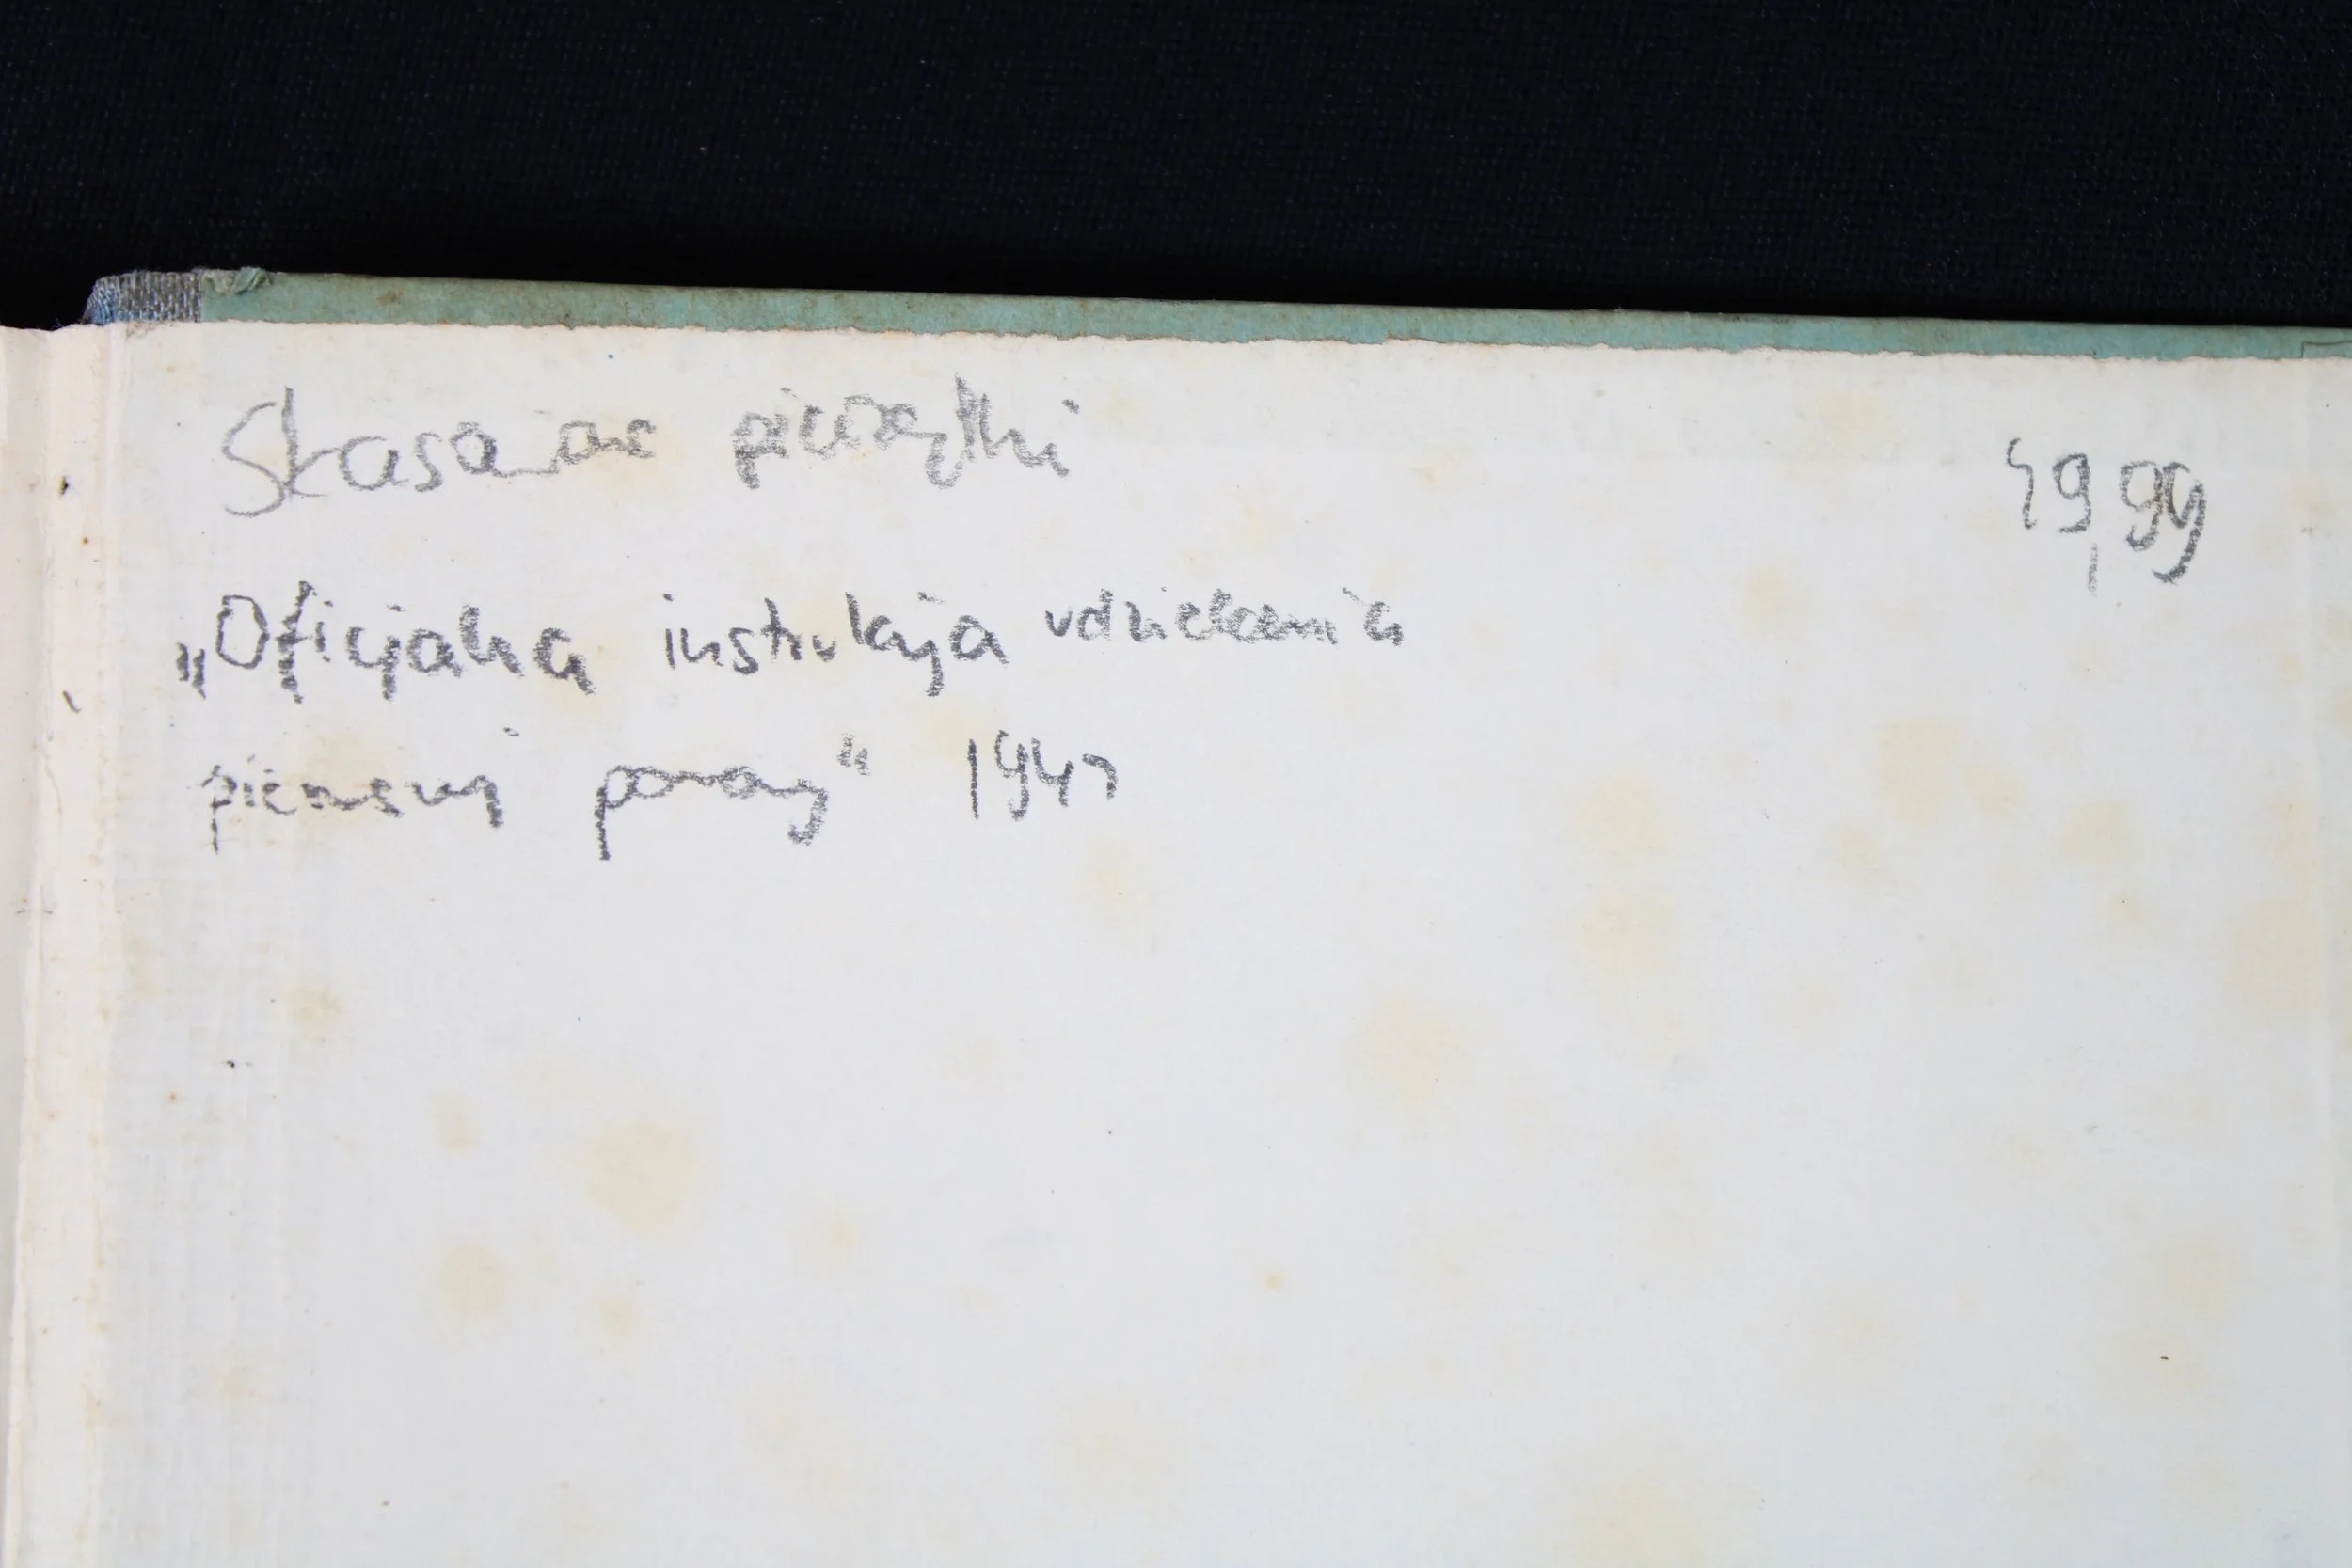 Skasowane pieczątki
49,99
„Oficjalna instrukcja udzielania
pierwszej pomocy“ 194